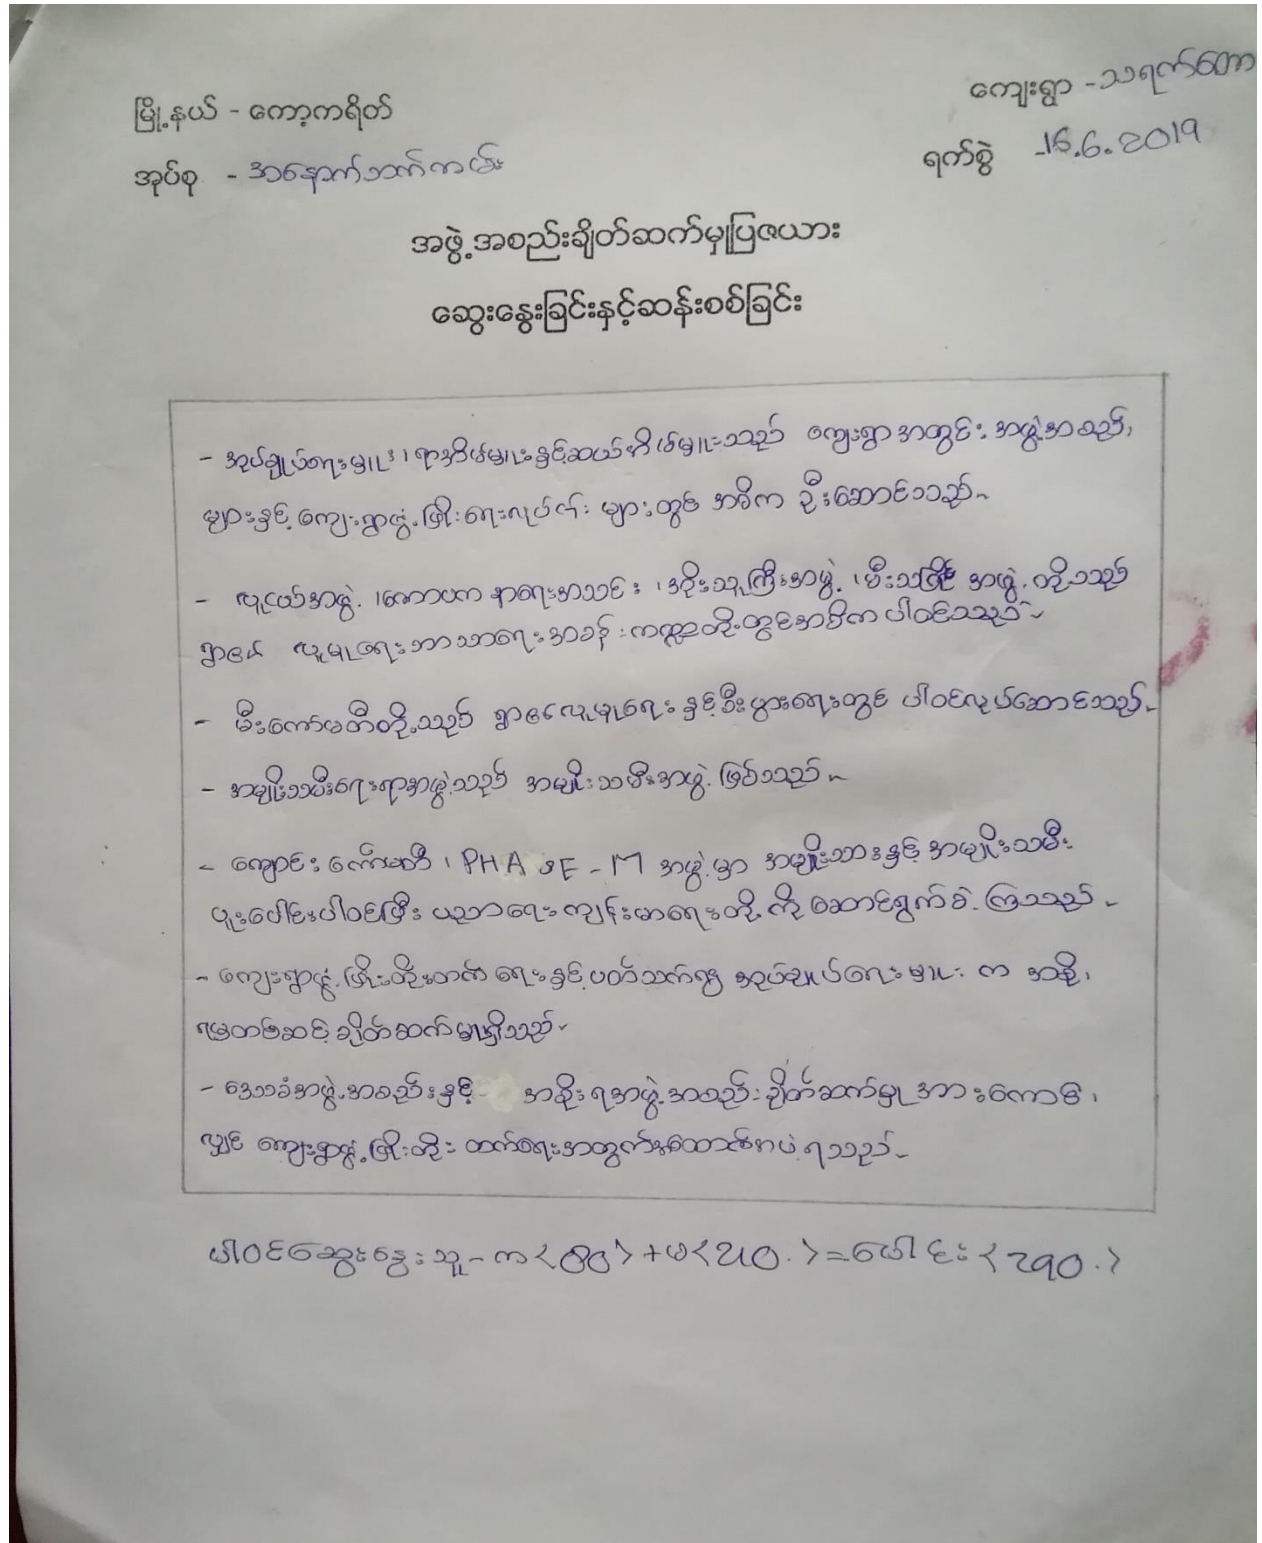 မြို့နယ် - ကော့ကရိတ်
ကျေးရွာ - သရက်တော
အုပ်စု - အနောက်ဘက်ကမ်း
ရက်စွဲ -16.6.2019
အဖွဲ့အစည်းချိတ်ဆက်မှုပြဇယား
ဆွေးနွေးခြင်းနှင့်ဆန်းစစ်ခြင်း
- အုပ်ချုပ်ရေးမှူး၊ ရာအိမ်မှူးနှင့်ဆယ်အိမ်မှူးသည် ကျေးရွာအတွင်း အဖွဲ့အစည်း
များနှင့် ကျေးရွာဖွံ့ဖြိုးရေးလုပ်ငန်းများတွင် အဓိက ဦးဆောင်သည်။
- လူငယ်အဖွဲ့ ၊ဂေါပကနာရေးအသင်း ၊အငိုးသူကြီးအဖွဲ့ ၊မီးသဂြိုဟ် အဖွဲ့ တို့သည်
ရွာ၏ လူမှုရေးဘာသာရေးအခန်းကဏ္ဍတိုးတွင်အဓိကပါဝင်သည်။
- မီးကော်မတီတို့သည် ရွာ၏လူမှုရေးနှင့်စီးပွားရေးတွင် ပါဝင်လုပ်ဆောင်သည်။
- အမျိုးသမီးရေးရာအဖွဲ့သည် အမျိုးသမီးအဖွဲ့ ဖြစ်သည်။
- ကျောင်းကော်မတီ၊ PHA အဖွဲ့မှာ အမျိုးသားနှင့် အမျိုးသမီး
ပူးပေါင်းပါဝင်ပြီး ပညာရေး ကျန်းမာရေးတို့ကို ဆောင်ရွက်ခဲ့ကြသည်။
- ကျေးရွာဖွံ့ဖြိုးတိုးတက်ရေးနှင့်ပတ်သက်၍ အုပ်ချုပ်ရေးမှူးက အစိုး
ရမှတစ်ဆင့် ချိတ်ဆက်မှုရှိသည်။
- ဒေသခံအဖွဲ့အစည်းနှင့် အစိုးရအဖွဲ့အစည်းချိတ်ဆက်မှု အားကောင်း
လျှင် ကျေးရွာဖွံ့ဖြိုးတိုးတက်ရေးအတွက်အထောက်အပံ့ရသည်။
ပါဝင်ဆွေးနွေးသူ - က<၈၀> + မ<၂၁၀.> = ပေါင်း<၂၉၀.>